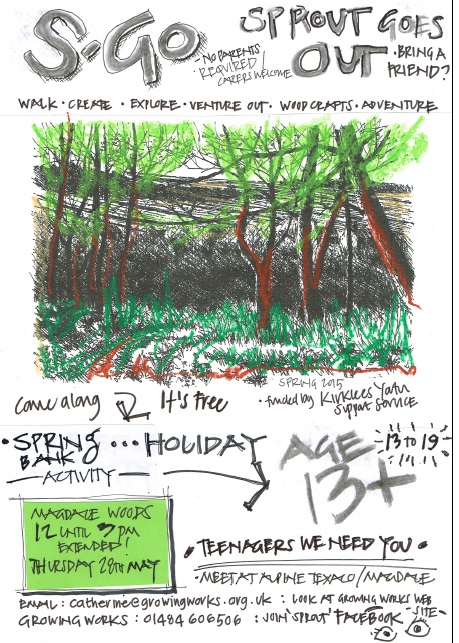 S-GO
SPROUT GOES
OUT
- NO PARENTS
REQUIRED /
CARERS WELCOME
• BRING A
FRIEND?
WALK • CREATE • EXPLORE • VENTURE OUT • WOODCRAFTS • ADVENTURE
SPRING 2015
• funded by Kirklees Youth
Support Service
come along
It's free
• SPRING ... HOLIDAY
BANK
ACTIVITY
AGE
13+
13 to 19
MAGDALE WOODS
12 UNTIL 3 PM
EXTENDED!
THURSDAY 28TH MAY
• TEENAGERS WE NEED YOU •
• MEET AT ALPINE TEXACO / MAGDALE
EMAIL : catherine@growingworks.org.uk : LOOK AT GROWING WORKS WEB
SITE -
GROWING WORKS : 01484 606506 : JOIN 'SPROUT' FACEBOOK